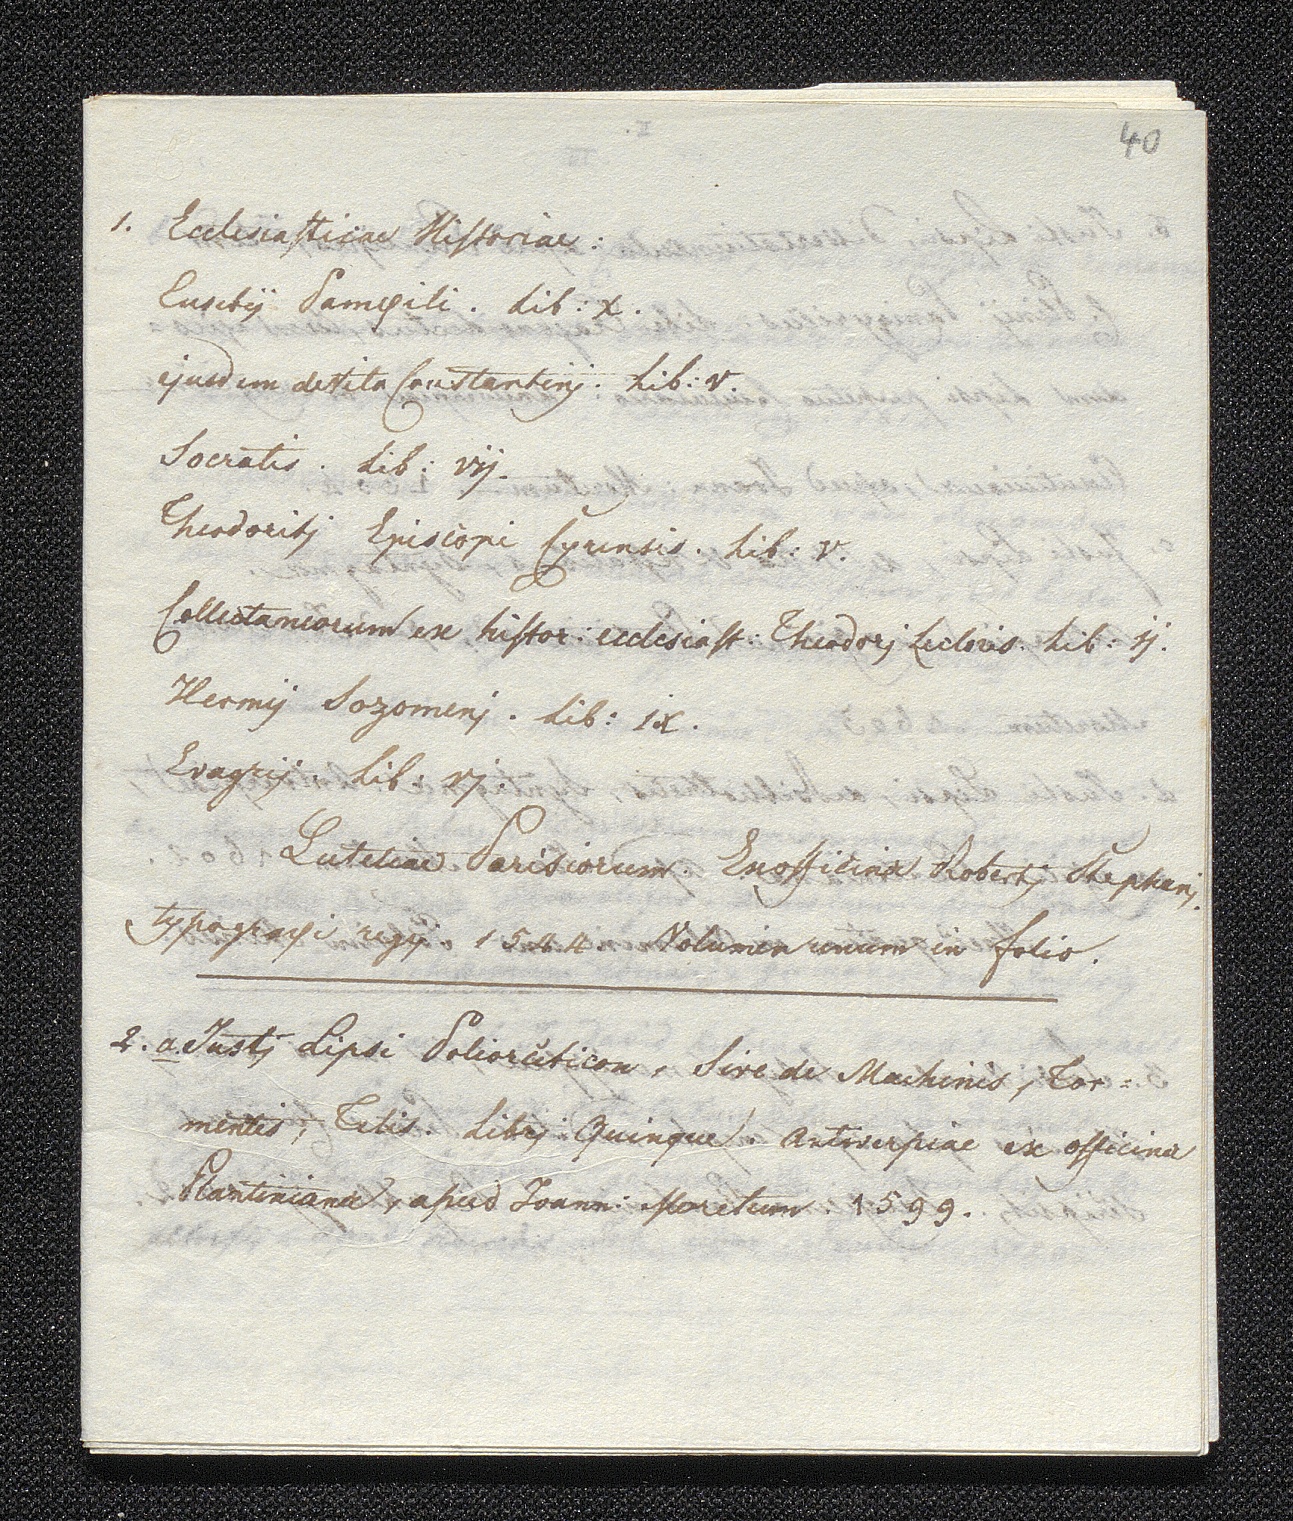 40
1. Ecclesiasticae Historiae :
Eusebij Pamφili . Lib : X .
ejusdem de Vita Constantinj . Lib : V .
Socratis . Lib : VIj .
Theodoritj Episcopi Cyrensis . Lib : V .
Collectaneorum ex histor : ecclesiast : Theodorj Lectoris . Lib : ij .
Hermij Sozomenj . Lib : IX .
Evagrij . Lib : Vj .
Luteciae Parisiorum . Ex officina Robertj Stephanj .
typograφi regij . 1544 . Volumen unum in folio .
2 . a . Justj Lipsi Poliorceticon , Sive de Machinis , Tor =
mentis , Telis . Librj Quinque . Antwerpiae ex officina
Plantiniana , apud Joann : Moretum . 1599 .